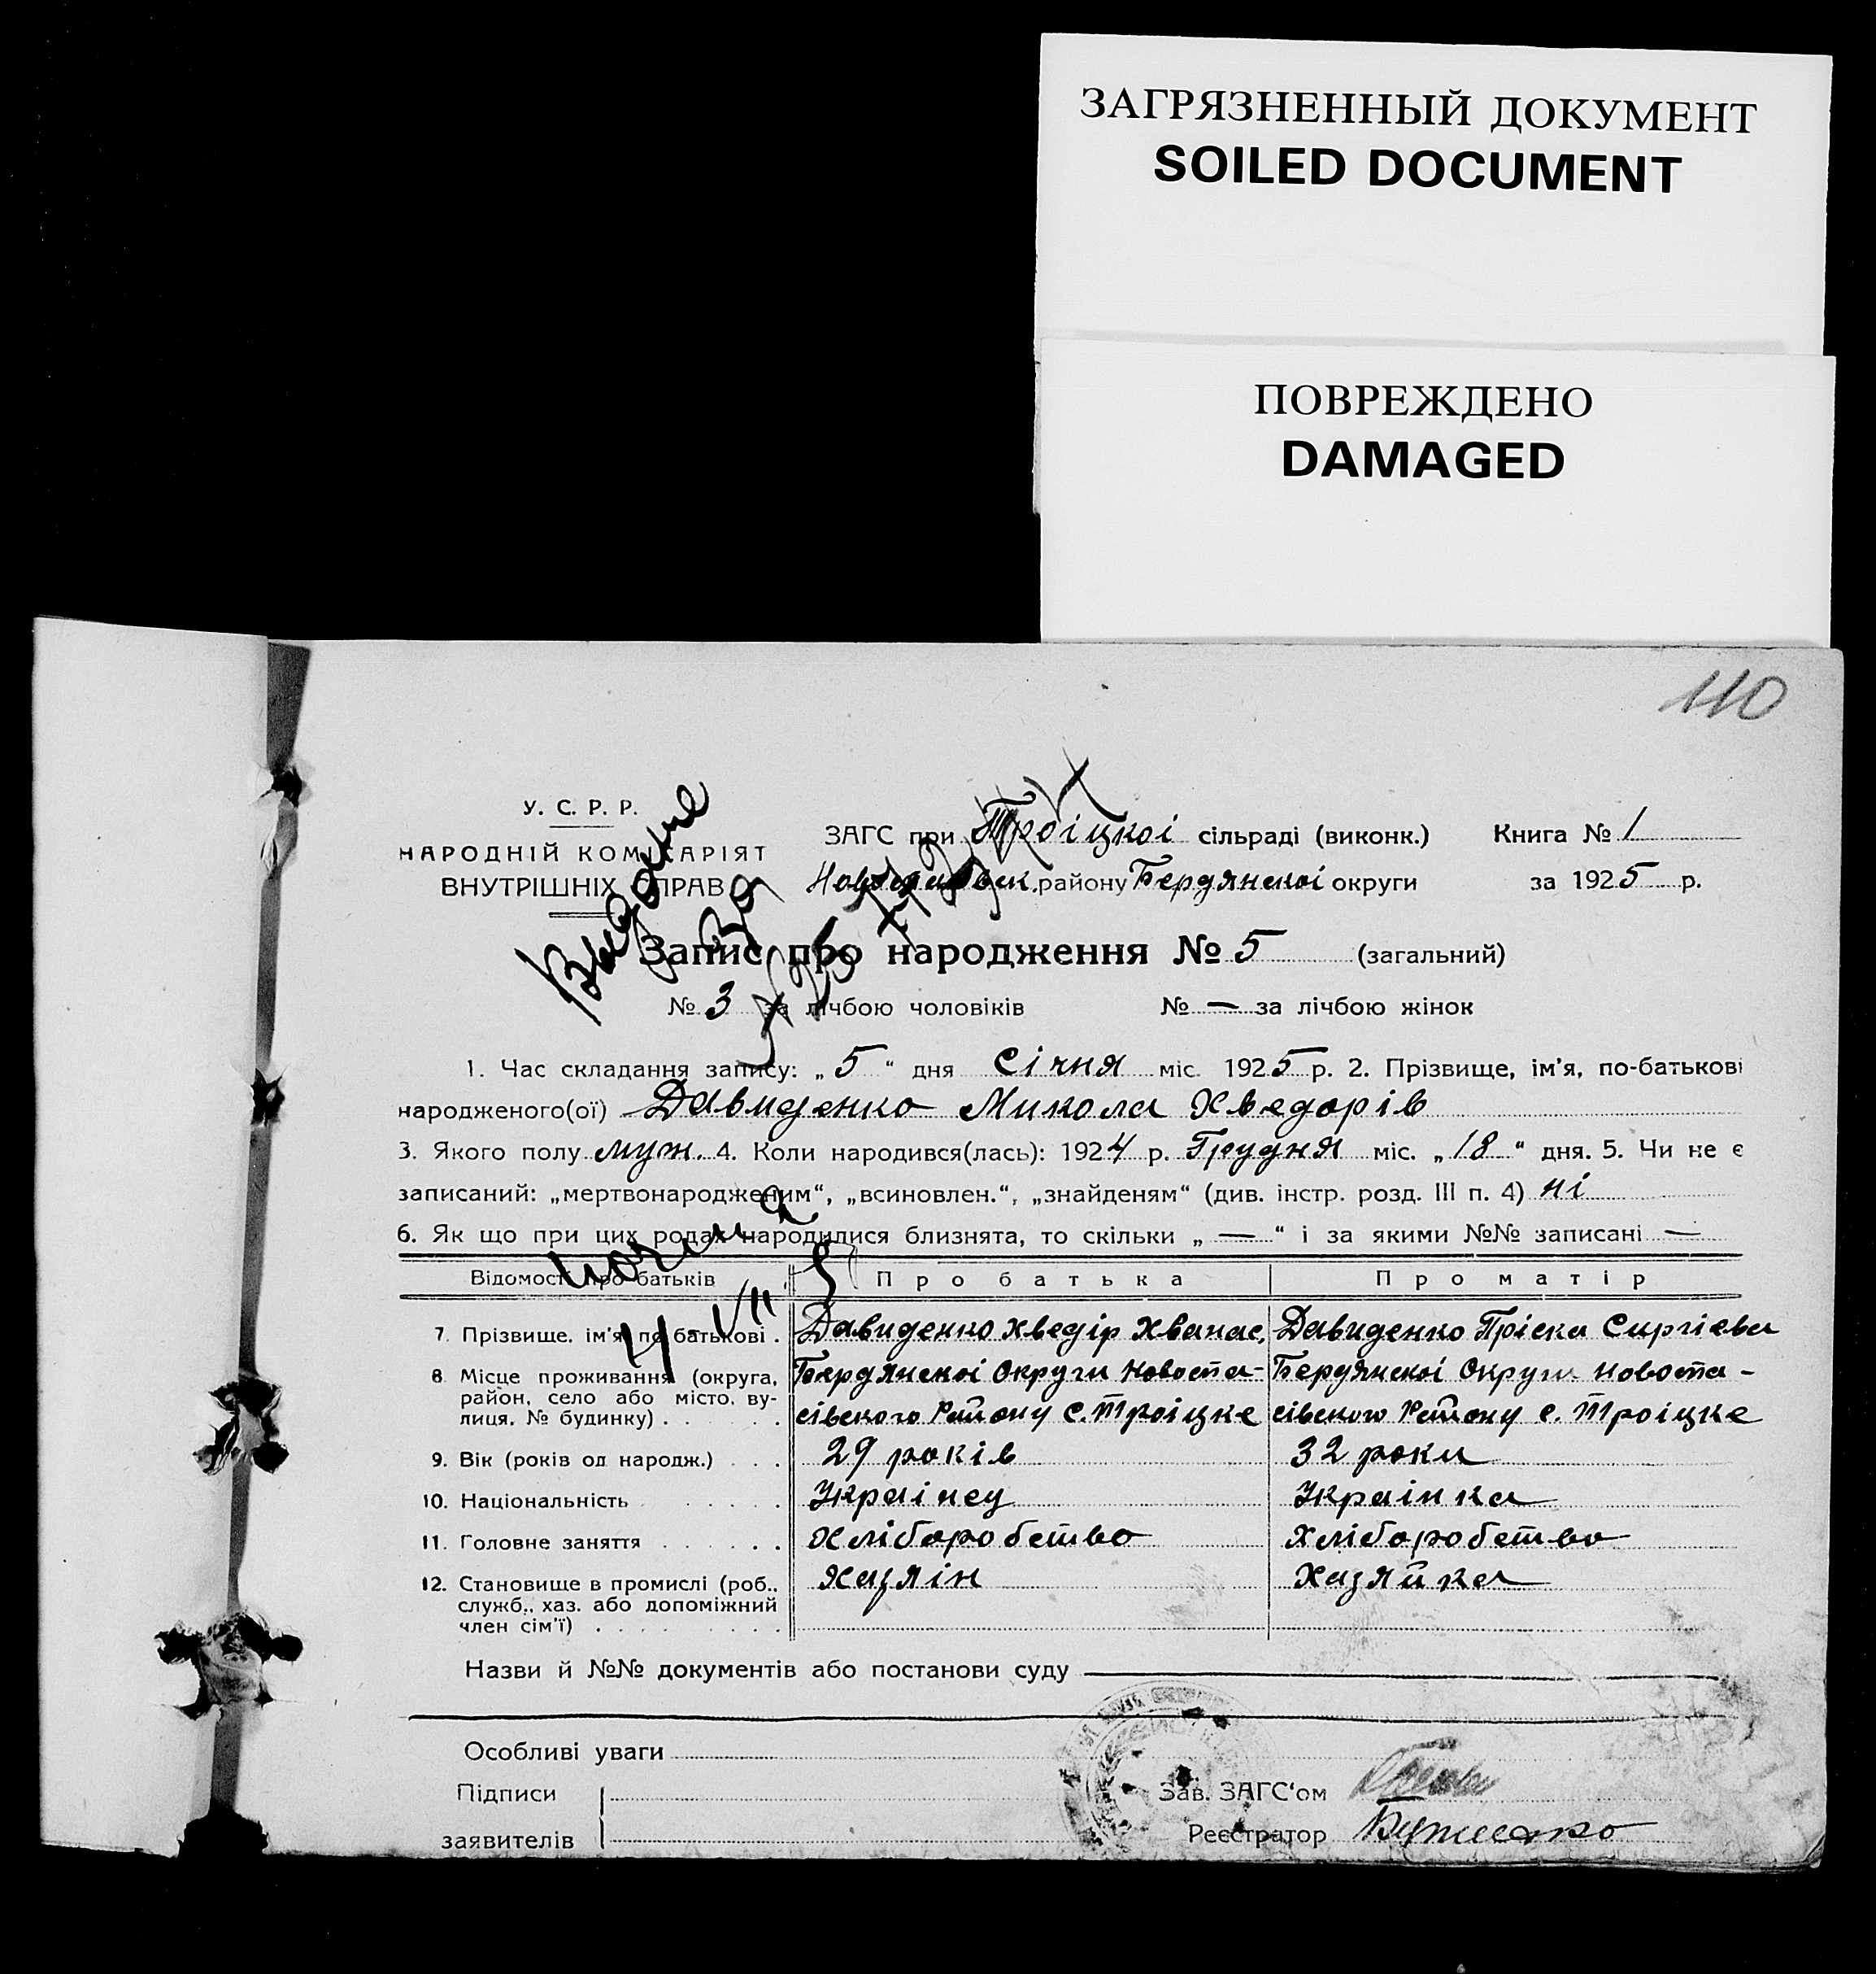 ЗАГРЯЗНЕННЫЙ ДОКУМЕНТ
SOILED DOCUMENT
ПОВРЕЖДЕНО
DAMAGED
110
У. С. Р. Р.
НАРОДНІЙ КОМІСАРІЯТ
ВНУТРІШНІХ СПРАВ
ЗАГС при Троіцкоі сільраді (виконк.) Книга № 1
району Бердянскоі округи за 1925 р.
Запис про народження № 5 (загальний)
№ 3 за лічбою чоловіків № — за лічбою жінок
1. Час складання запису: „5“ дня Січня міс. 1925 р. 2. Прізвище, ім'я, по-батькові
народженого(ої) Давиденко Микола Хведорів
3. Якого полу муж. 4. Коли народився(лась): 1924 р. Грудня міс. „18“ дня. 5. Чи не є
записаний: „мертвонародженим“, „всиновлен.“, „знайденям“ (див. інстр. розд. III п. 4) ні
6. Як що при цих родах народилися близнята, то скільки „—“ і за якими №№ записані —
Відомості про батьків Про батька Про матір
7. Прізвище, ім'я, по батькові . Давиденко Хведір Хванас. Давиденко Пріска Сиргієва
8. Місце проживання (округа, Бердянскоі Округи Новоспа- Бердянскоі Округи Новоспа-
район, село або місто, ву- сівского Району с. Троіцке сівского Району с. Троіцке
лиця, № будинку) . . . .
9. Вік (років од народж.) . . . 29 років 32 роки
10. Національність . . . . . . Украінец Украінка
11. Головне заняття . . . . . . Хліборобство Хліборобство
12. Становище в промислі (роб., Хазяін Хазяйка
служб., хаз. або допоміжний
член сім'ї) . . . . . . . .
Назви й №№ документів або постанови суду
Особливі уваги
Підписи
заявителів
Зав. ЗАГС'ом
Реєстратор